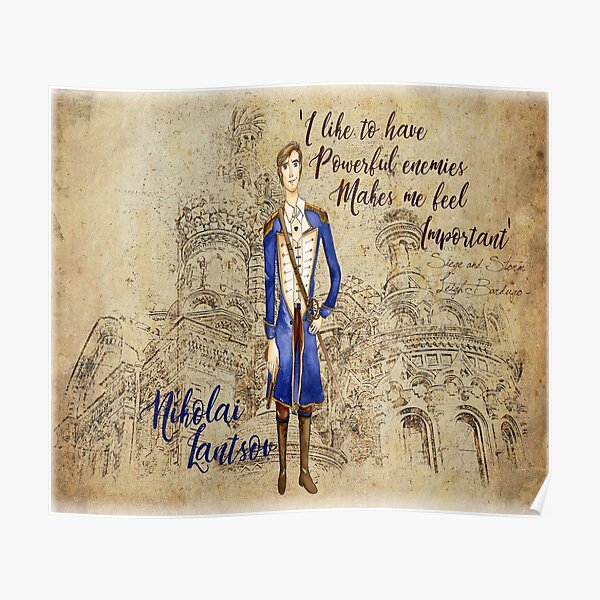 'I like to have
Powerful enemies
Makes me feel
Important'
Siege and Storm
Leigh Bardugo -
Nikolai
Lantsov